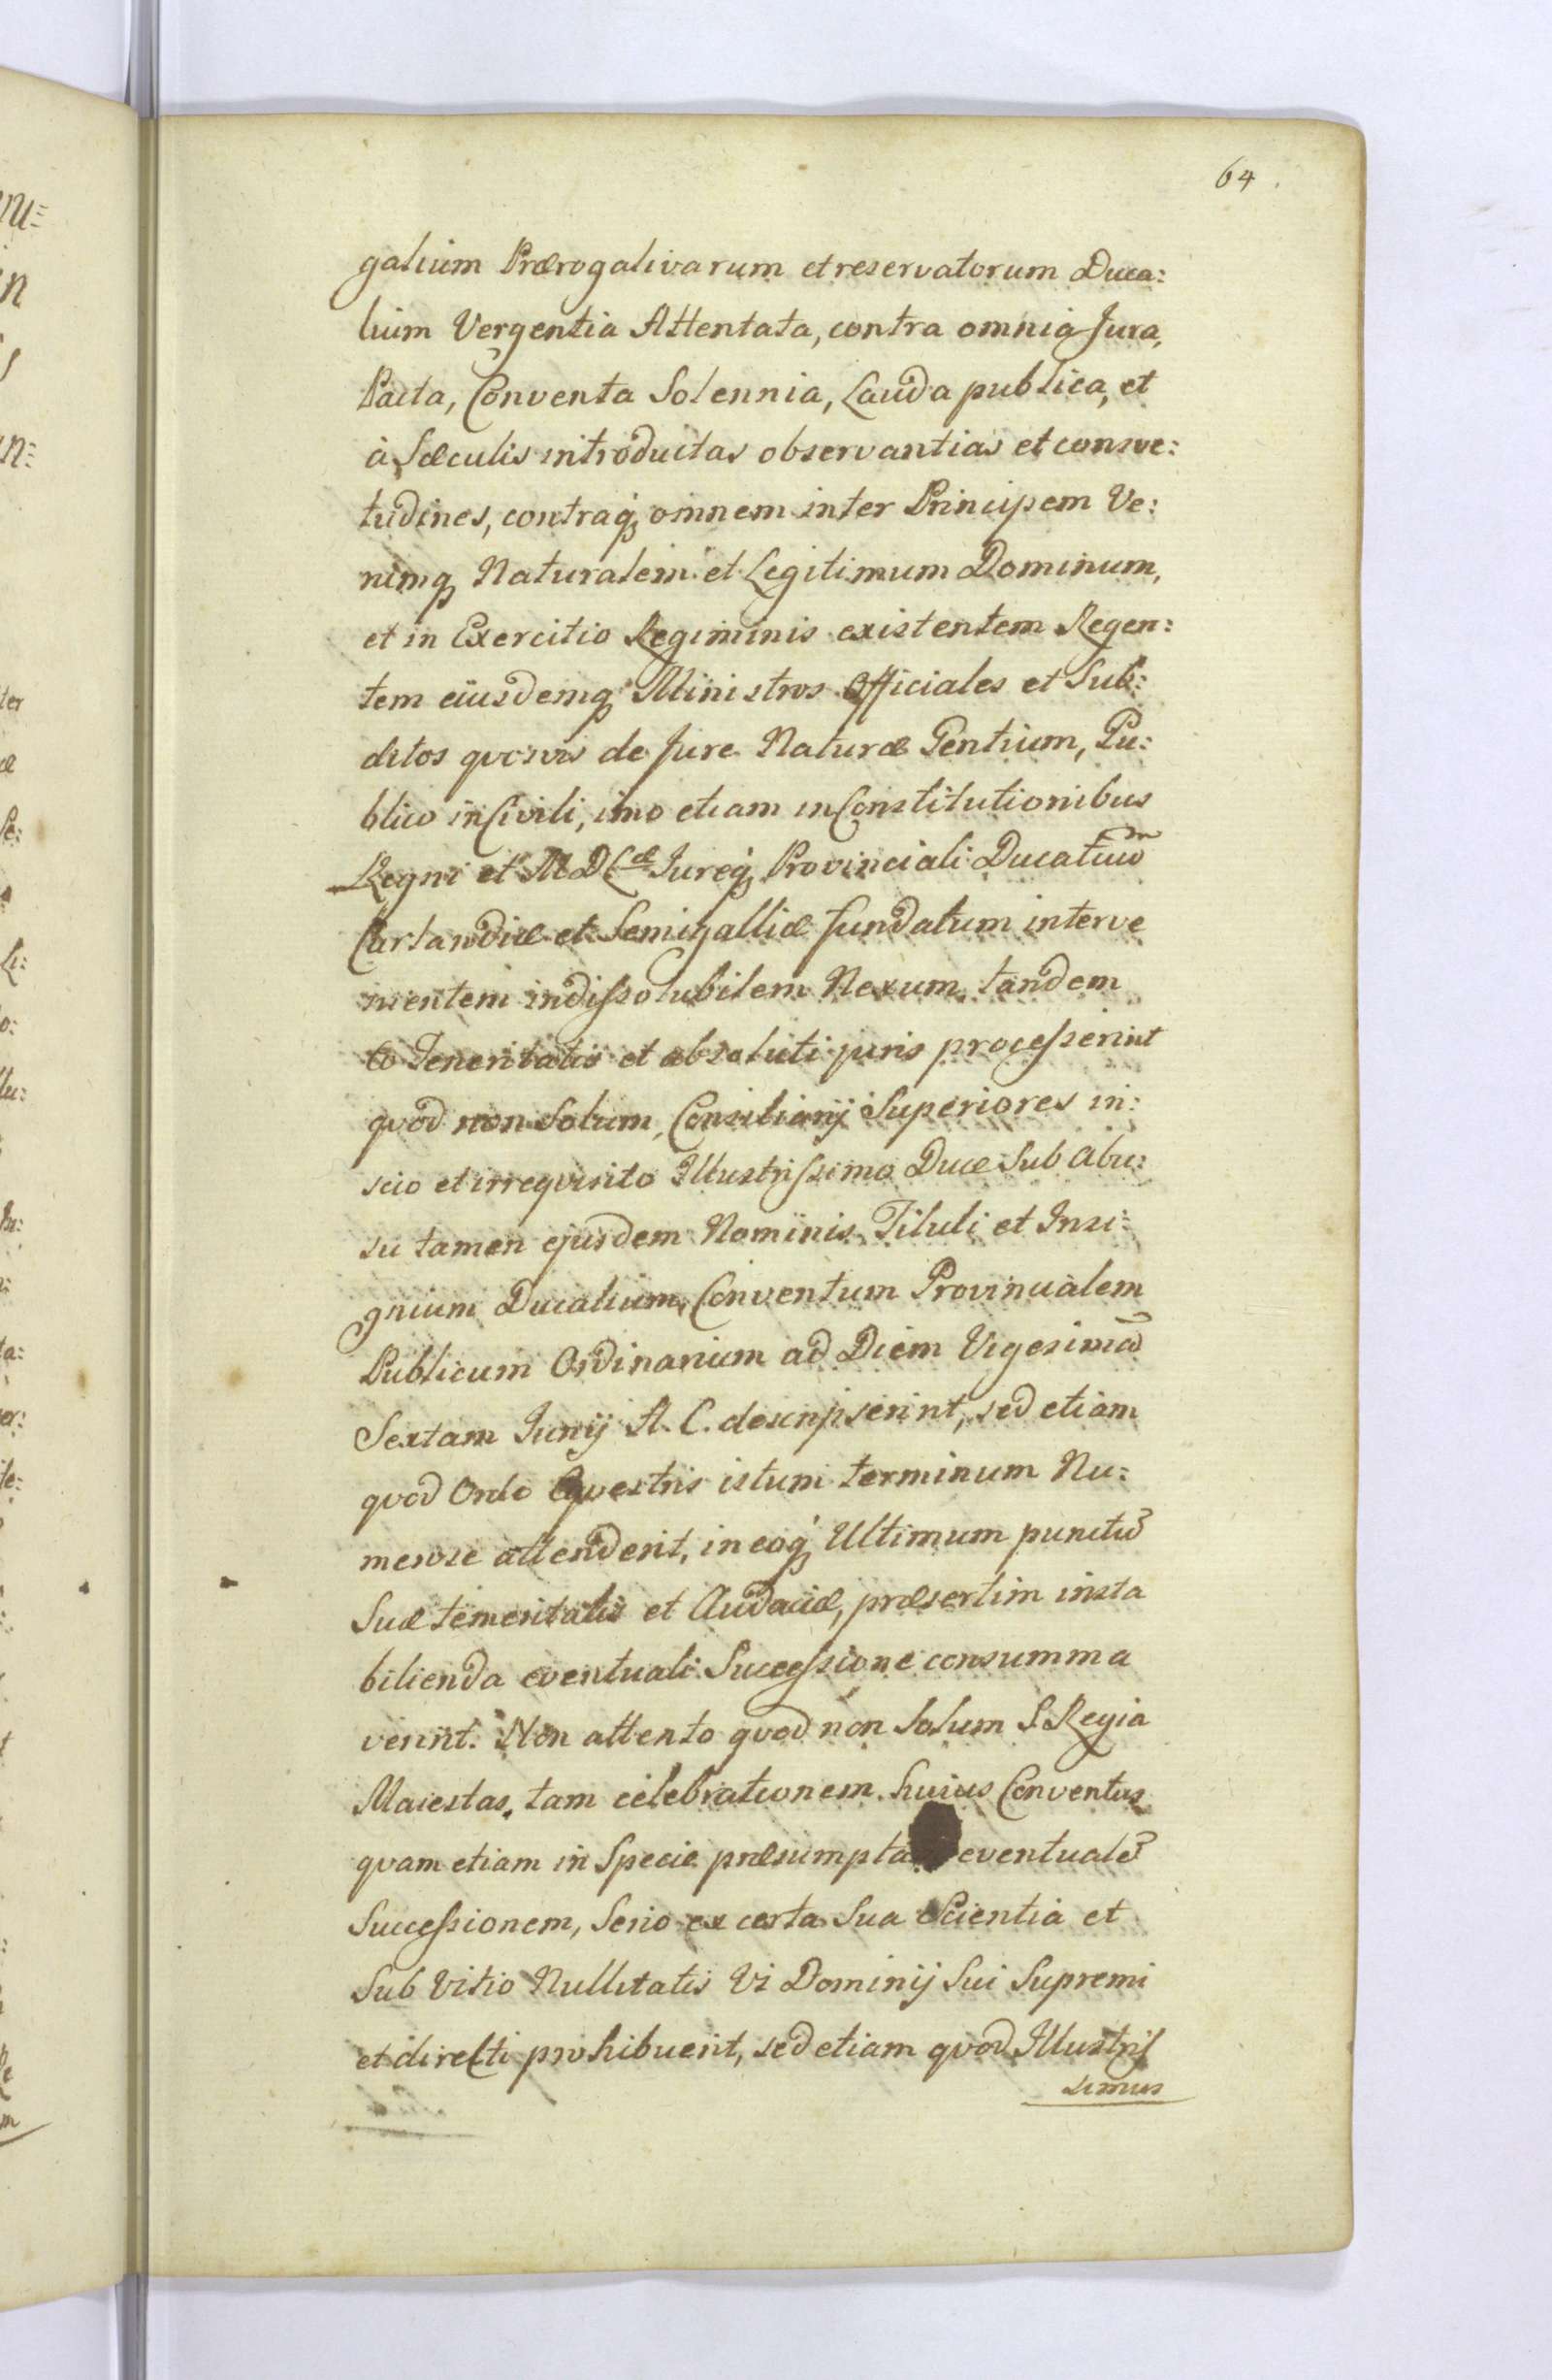 64
galium Prærogativarum et reservatorum Duca:
lium Vergentia Attentata, contra omnia Jura,
Pacta, Conventa Solennia, Lauda publica, et
à Sæculis introductas observantias et consve:
tudines, contraq, omnem inter Principem Ve:
rumq, Naturalem et Legitimum Dominum,
et in Exercitio Regiminis existentem Regen:
tem eiusdemq, Ministros Officiales et Sub:
ditos qvosvis de Jure Naturæ Gentium, Pu:
blico in Civili, imo etiam in Constitutionibus
Regni et M D Læ Jureq, Provinciali Ducatuum
Curlandiæ et Semigalliæ fundatum interve
nientem indissolubilem Nexum, tandem
eo Temeritatis et absoluti juris processerint
qvod non Solum, Consiliarij Superiores in:
scio et irreqvisito Illustrissimo Duce Sub abu:
su tamen ejusdem Nominis, Tituli et Insi:
gnium Ducalium, Conventum Provincialem
Publicum Ordinarium ad Diem Vigesimã
Sextam Junij A. C. descripserint, sed etiam
qvod Ordo Eqvestris istum terminum Nu:
merose attenderit, in eoq, Ultimum punctũ
Suæ temeritatis et Audaciæ, præsertim insta
bilienda eventuali Successione consumma
verint. Non attento qvod non Solum S. Regia
Maiestas, tam celebrationem huius Conventus
qvam etiam in Specie præsumpta eventualẽ
Successionem, Serio ex certa Sua Scientia et
Sub Vitio Nullitatis Vi Dominij Sui Supremi
et directi prohibuerit, sed etiam qvod Illustris
simus